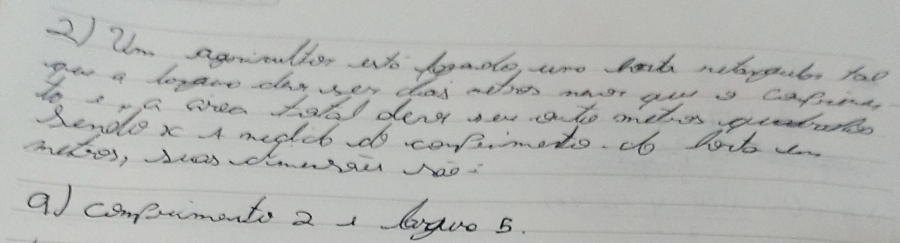 2) Um agricultor está fazendo uma horta retangular tal
que a largura deve ser dois metros maior que o comprimen
to e, a área total deve ser oito metros quadrados
Sendo x a medida do comprimento do horta em
metros, suas dimensões são:
a) comprimento 2 e largura 5.